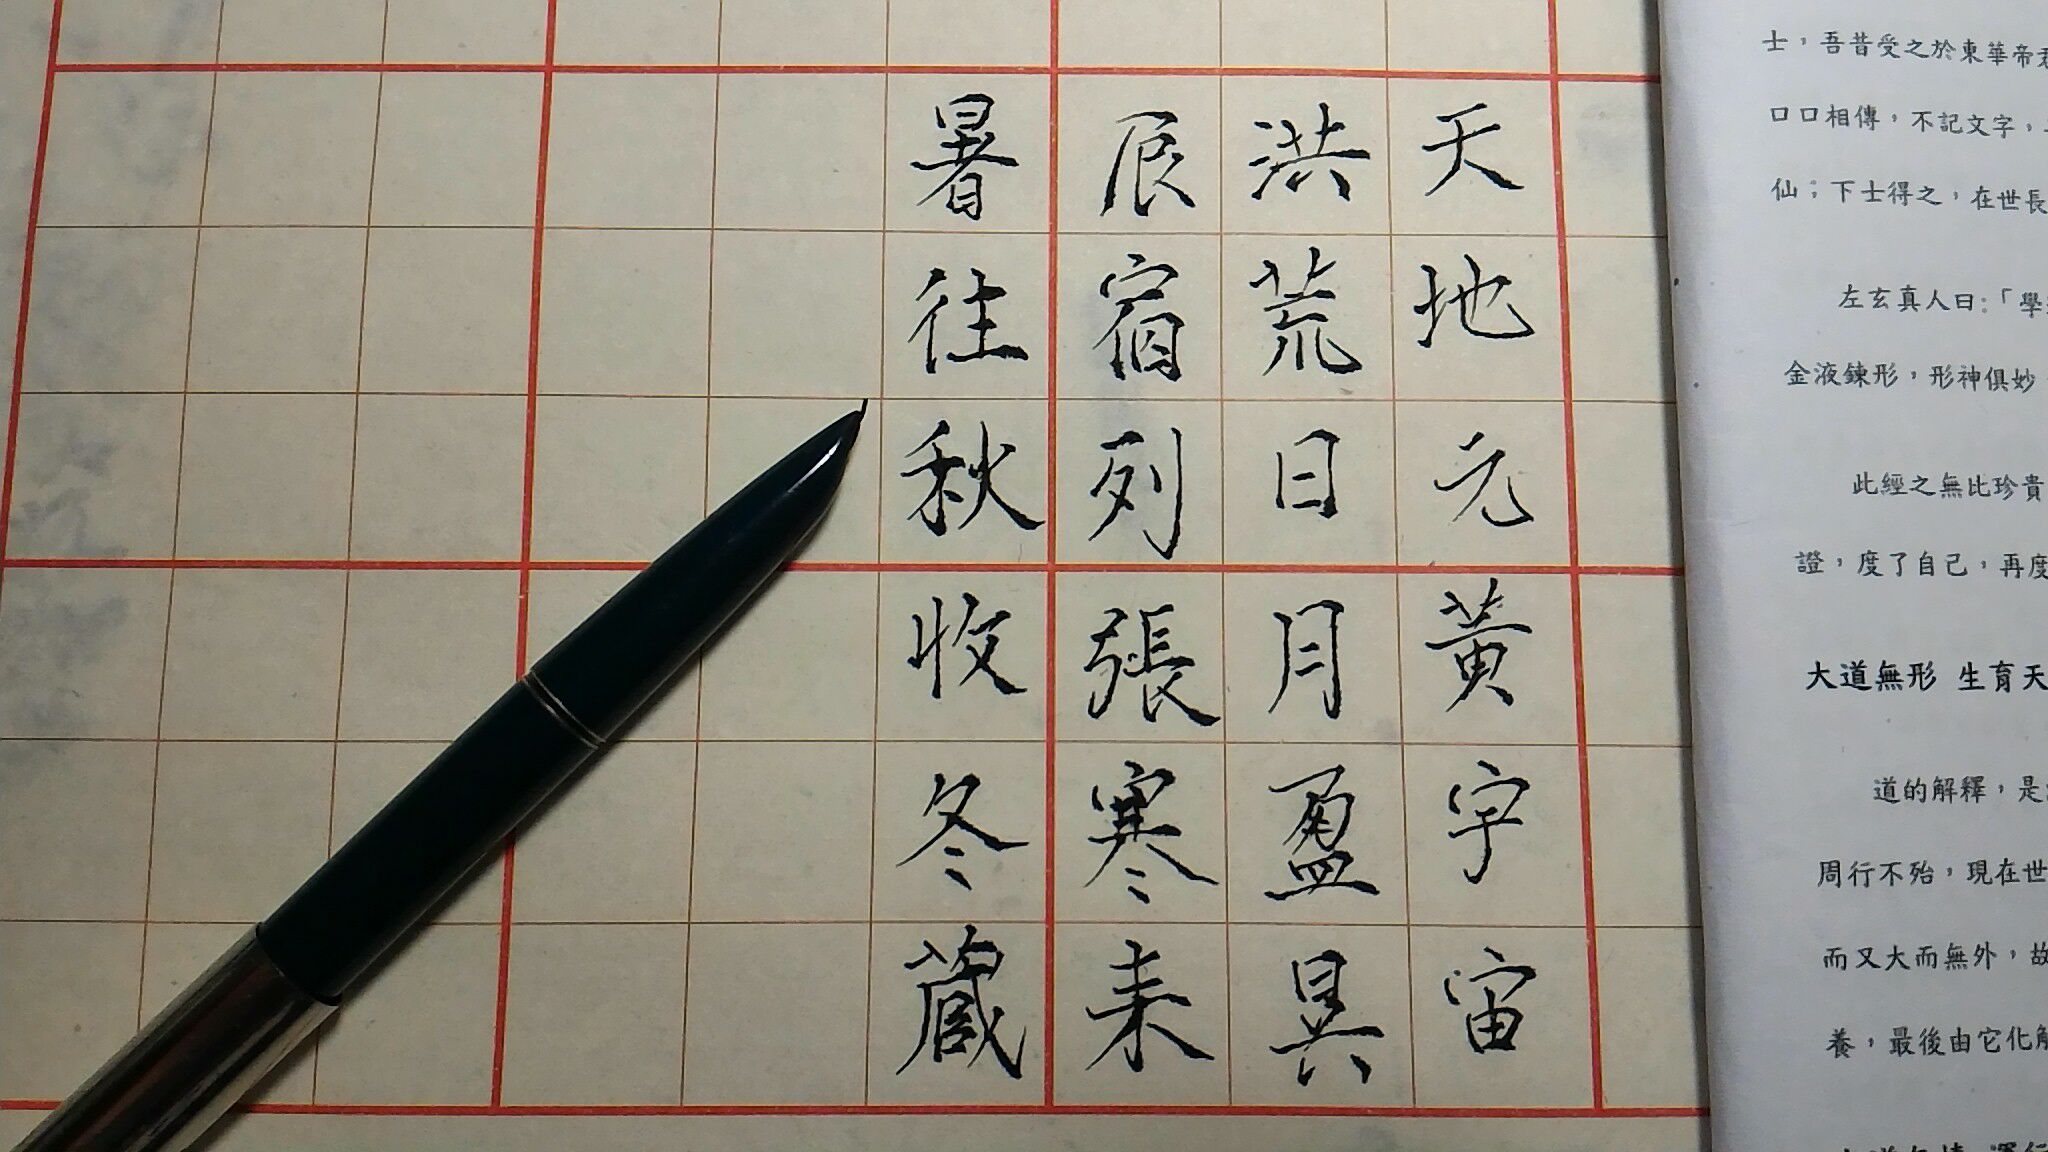 天地元黃宇宙
洪荒日月盈昃
辰宿列張寒来
暑往秋收冬藏
士，吾昔受之於東華帝君
口口相傳，不記文字，
仙；下士得之，在世長
左玄真人曰：「學
金液鍊形，形神俱妙
此經之無比珍貴
證，度了自己，再度
大道無形 生育天
道的解釋，是
周行不殆，現在世
而又大而無外，故
養，最後由它化解